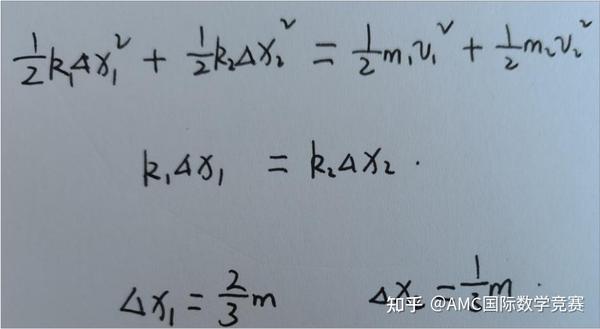 ½k₁Δx₁² + ½k₂Δx₂² = ½m₁v₁² + ½m₂v₂²
k₁Δx₁ = k₂Δx₂.
Δx₁ = 2/3 m Δx₂ = 1/3 m.
知乎 @AMC国际数学竞赛